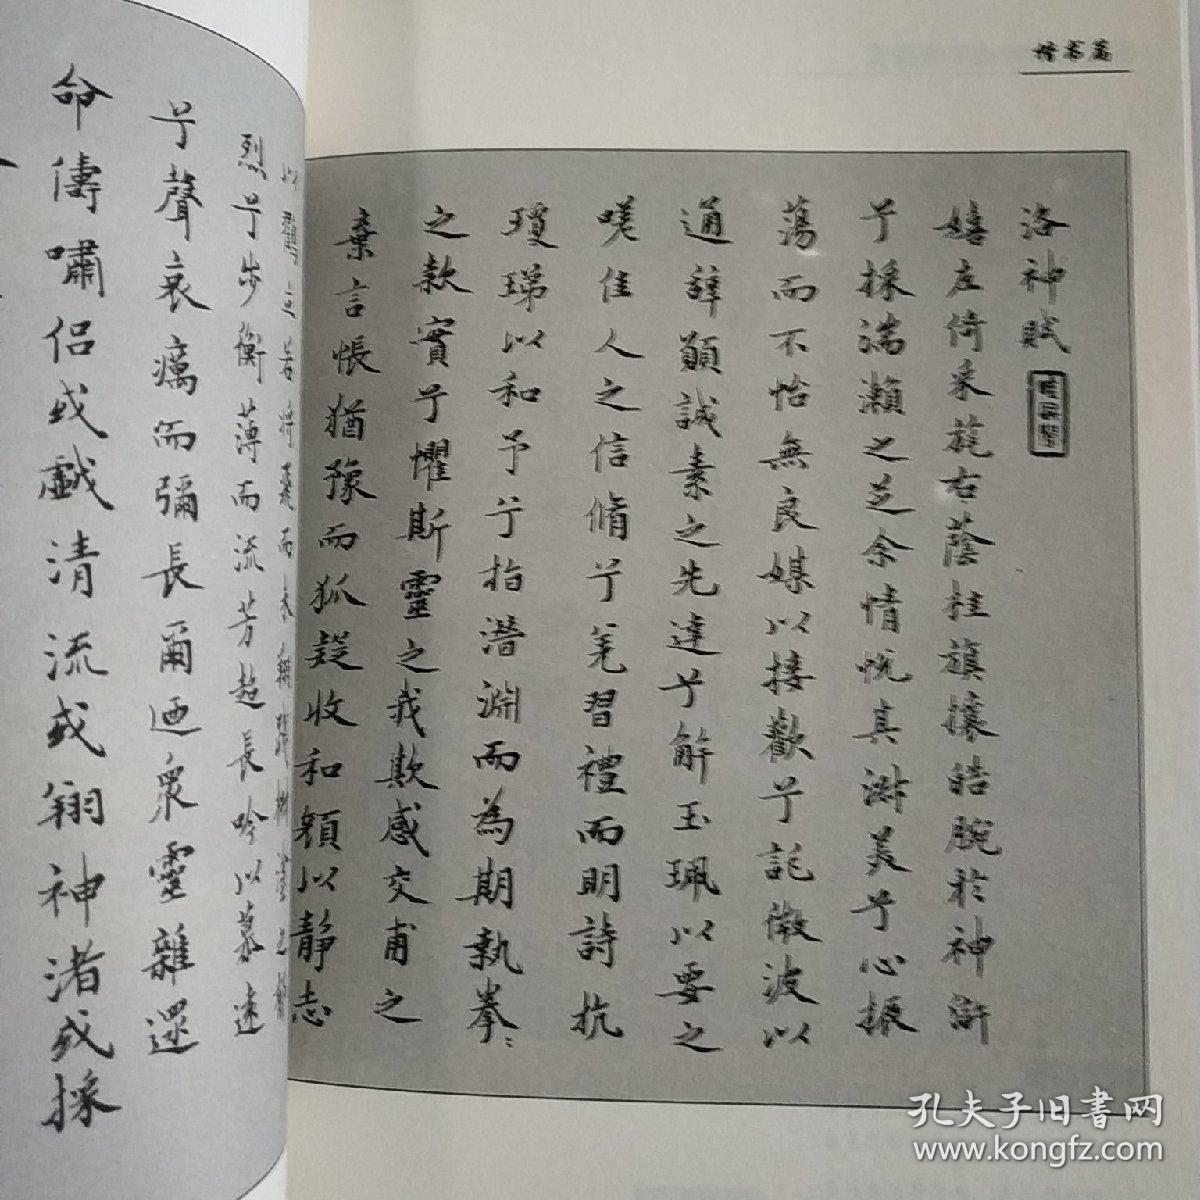 楷书篇
洛神賦
嬉左倚采旄右蔭桂旗攘皓腕於神滸
兮採湍瀨之芝余情悅其淑美兮心振
蕩而不怡無良媒以接歡兮託微波以
通辭願誠素之先達兮解玉珮以要之
嗟佳人之信脩兮羌習禮而明詩抗
瓊珶以和予兮指潛淵而為期執拳〻
之款實兮懼斯靈之我欺感交甫之
棄言悵猶豫而狐疑收和顏以靜志
以鶴立若將飛而未翔踐椒塗之郁
烈兮步衡薄而流芳超長吟以慕遠
兮聲哀癘而彌長爾迺眾靈雜遝
命儔嘯侶或戲清流或翔神渚或採
孔夫子旧书网
www.kongfz.com